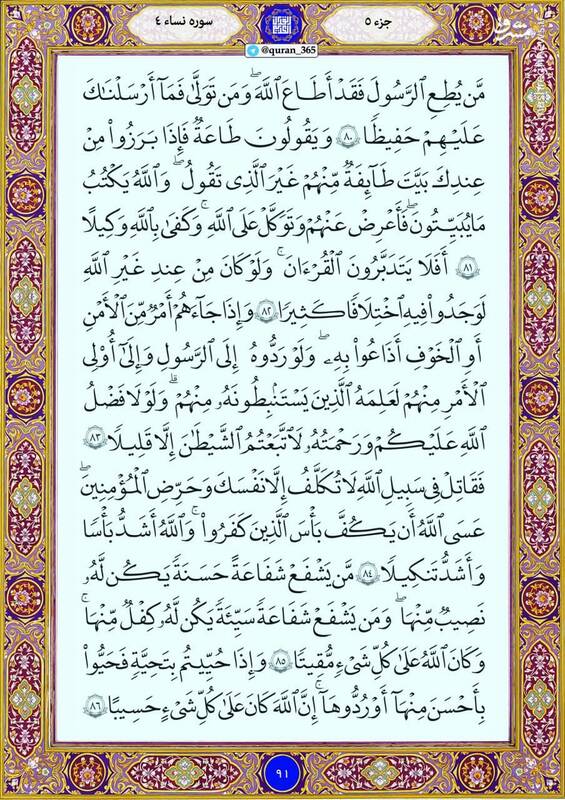 سوره نساء ٤
جزء ٥
@quran_365
مَّن يُطِعِ ٱلرَّسُولَ فَقَدْ أَطَاعَ ٱللَّهَ ۖ وَمَن تَوَلَّىٰ فَمَآ أَرْسَلْنَٰكَ
عَلَيْهِمْ حَفِيظًا ٨٠ وَيَقُولُونَ طَاعَةٌ فَإِذَا بَرَزُوا۟ مِنْ
عِندِكَ بَيَّتَ طَآئِفَةٌ مِّنْهُمْ غَيْرَ ٱلَّذِى تَقُولُ ۖ وَٱللَّهُ يَكْتُبُ
مَا يُبَيِّتُونَ ۖ فَأَعْرِضْ عَنْهُمْ وَتَوَكَّلْ عَلَى ٱللَّهِ ۚ وَكَفَىٰ بِٱللَّهِ وَكِيلًا
٨١ أَفَلَا يَتَدَبَّرُونَ ٱلْقُرْءَانَ ۚ وَلَوْ كَانَ مِنْ عِندِ غَيْرِ ٱللَّهِ
لَوَجَدُوا۟ فِيهِ ٱخْتِلَٰفًا كَثِيرًا ٨٢ وَإِذَا جَآءَهُمْ أَمْرٌ مِّنَ ٱلْأَمْنِ
أَوِ ٱلْخَوْفِ أَذَاعُوا۟ بِهِۦ ۖ وَلَوْ رَدُّوهُ إِلَى ٱلرَّسُولِ وَإِلَىٰٓ أُو۟لِى
ٱلْأَمْرِ مِنْهُمْ لَعَلِمَهُ ٱلَّذِينَ يَسْتَنۢبِطُونَهُۥ مِنْهُمْ ۗ وَلَوْلَا فَضْلُ
ٱللَّهِ عَلَيْكُمْ وَرَحْمَتُهُۥ لَٱتَّبَعْتُمُ ٱلشَّيْطَٰنَ إِلَّا قَلِيلًا ٨٣
فَقَٰتِلْ فِى سَبِيلِ ٱللَّهِ لَا تُكَلَّفُ إِلَّا نَفْسَكَ وَحَرِّضِ ٱلْمُؤْمِنِينَ ۖ
عَسَى ٱللَّهُ أَن يَكُفَّ بَأْسَ ٱلَّذِينَ كَفَرُوا۟ ۚ وَٱللَّهُ أَشَدُّ بَأْسًا
وَأَشَدُّ تَنكِيلًا ٨٤ مَّن يَشْفَعْ شَفَٰعَةً حَسَنَةً يَكُن لَّهُۥ
نَصِيبٌ مِّنْهَا ۖ وَمَن يَشْفَعْ شَفَٰعَةً سَيِّئَةً يَكُن لَّهُۥ كِفْلٌ مِّنْهَا ۗ
وَكَانَ ٱللَّهُ عَلَىٰ كُلِّ شَىْءٍ مُّقِيتًا ٨٥ وَإِذَا حُيِّيتُم بِتَحِيَّةٍ فَحَيُّوا۟
بِأَحْسَنَ مِنْهَآ أَوْ رُدُّوهَآ ۗ إِنَّ ٱللَّهَ كَانَ عَلَىٰ كُلِّ شَىْءٍ حَسِيبًا ٨٦
٩١